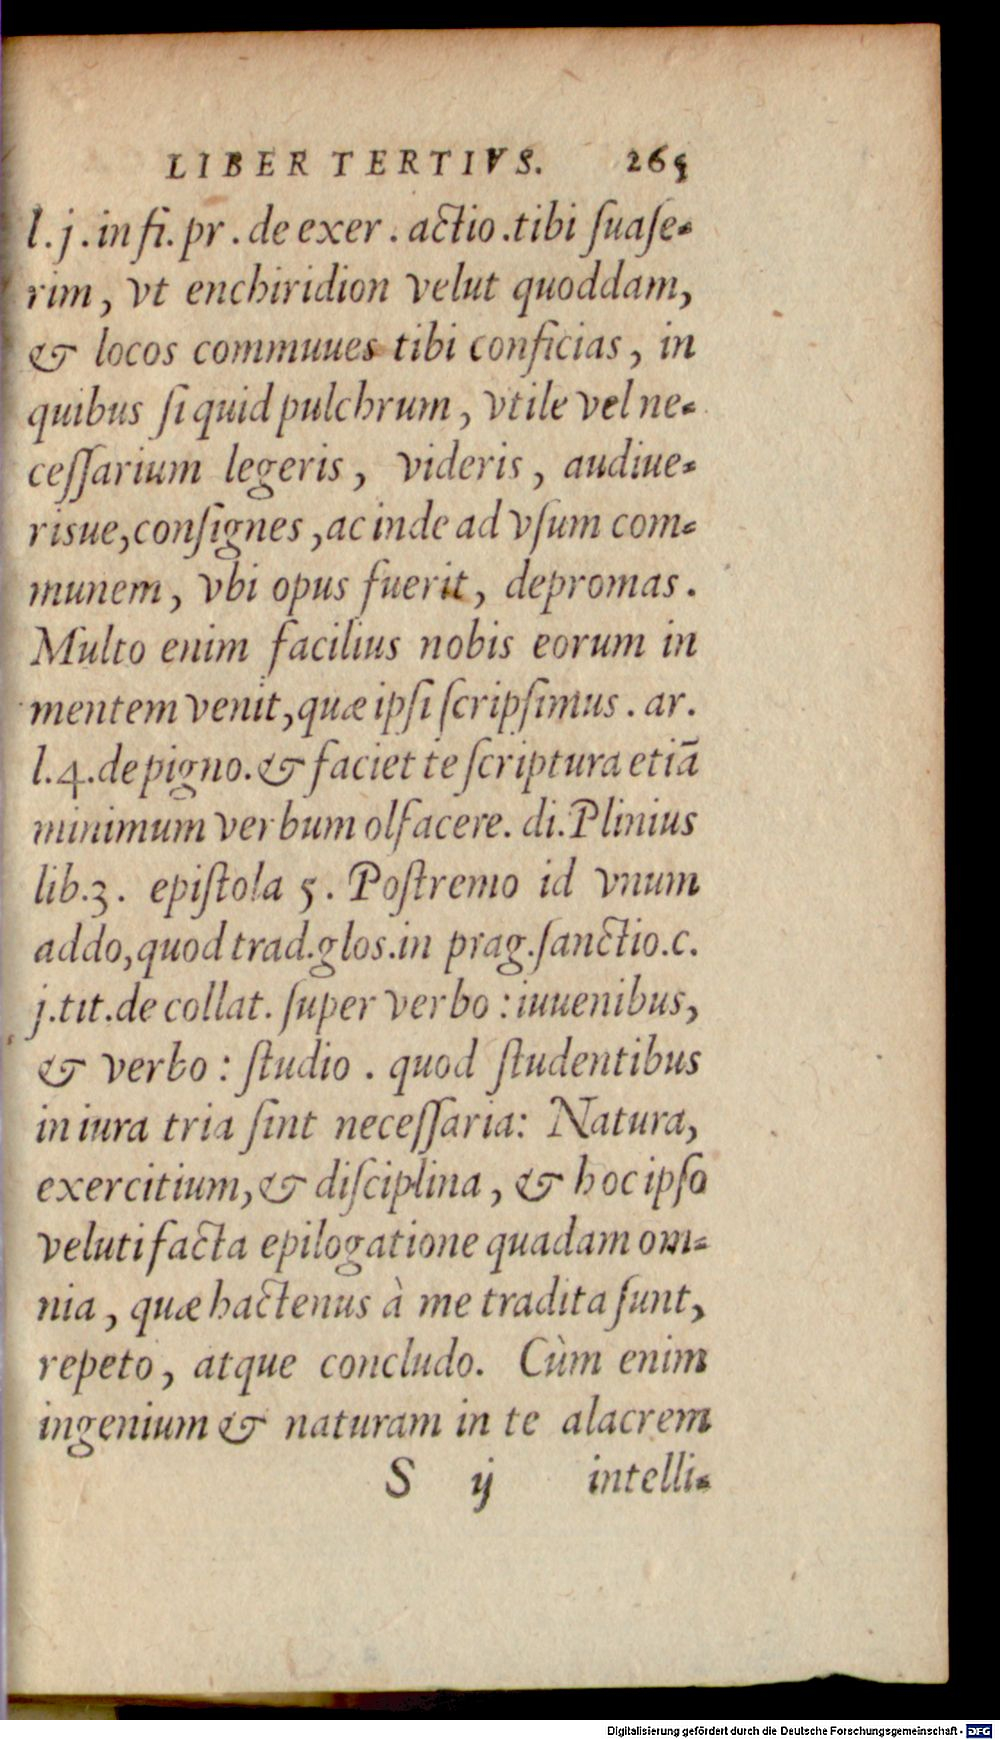 LIBER TERTIVS. 265
l.j.in fi.pr.de exer.actio.tibi ſuaſe-
rim, vt enchiridion velut quoddam,
& locos commuues tibi conficias, in
quibus ſi quid pulchrum, vtile vel ne-
ceſſarium legeris, videris, audiue-
risue, conſignes, ac inde ad vſum com-
munem, vbi opus fuerit, depromas.
Multo enim facilius nobis eorum in
mentem venit, quæ ipſi ſcripſimus. ar.
l.4.de pigno. & faciet te ſcriptura etiā
minimum verbum olfacere. di.Plinius
lib.3. epiſtola 5. Poſtremo id vnum
addo, quod trad.glos.in prag.ſanctio.c.
j.tit.de collat. ſuper verbo: iuuenibus,
& verbo: ſtudio. quod ſtudentibus
in iura tria ſint neceſſaria: Natura,
exercitium, & diſciplina, & hoc ipſo
veluti facta epilogatione quadam om-
nia, quæ hactenus à me tradita ſunt,
repeto, atque concludo. Cùm enim
ingenium & naturam in te alacrem
S ij intelli-
Digitalisierung gefördert durch die Deutsche Forschungsgemeinschaft - DFG